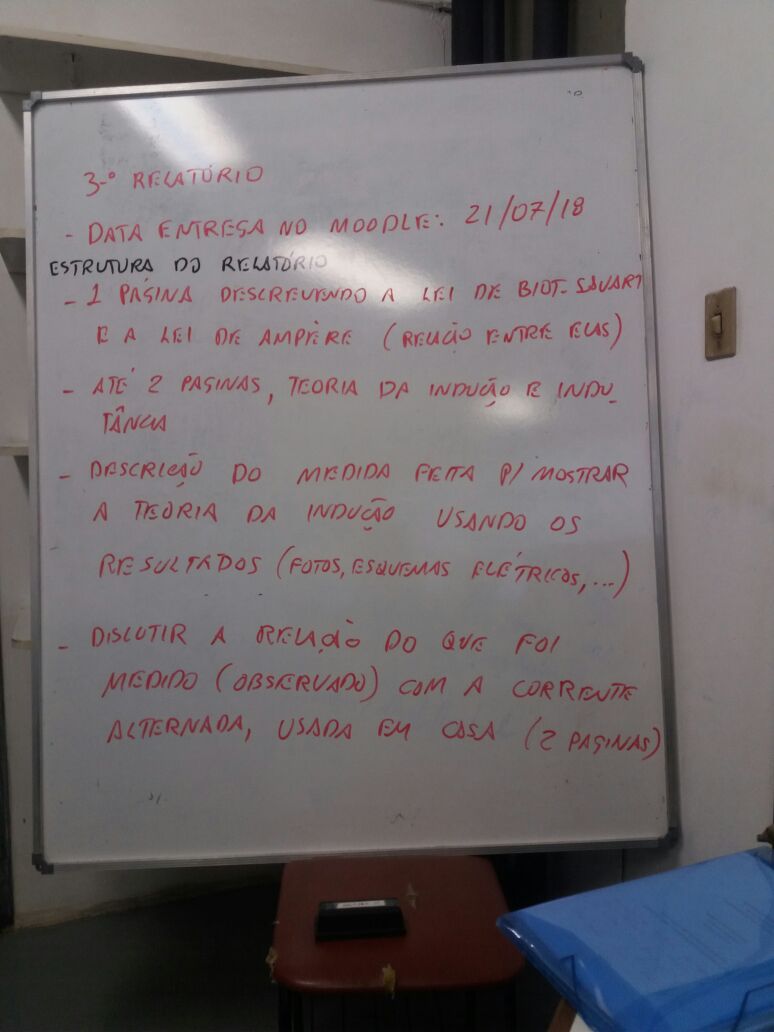 3º RELATÓRIO
- DATA ENTREGA NO MOODLE: 21/07/18
ESTRUTURA DO RELATÓRIO
- 1 PÁGINA DESCREVENDO A LEI DE BIOT-SAVART
E A LEI DE AMPÈRE (RELAÇÃO ENTRE ELAS)
- ATÉ 2 PAGINAS, TEORIA DA INDUÇÃO E INDU_
TÂNCIA
- DESCRIÇÃO DO MEDIDA FEITA P/ MOSTRAR
A TEORIA DA INDUÇÃO USANDO OS
RESULTADOS (FOTOS, ESQUEMAS ELÉTRICOS,...)
- DISCUTIR A RELAÇÃO DO QUE FOI
MEDIDO (OBSERVADO) COM A CORRENTE
ALTERNADA, USADA EM CASA (2 PAGINAS)